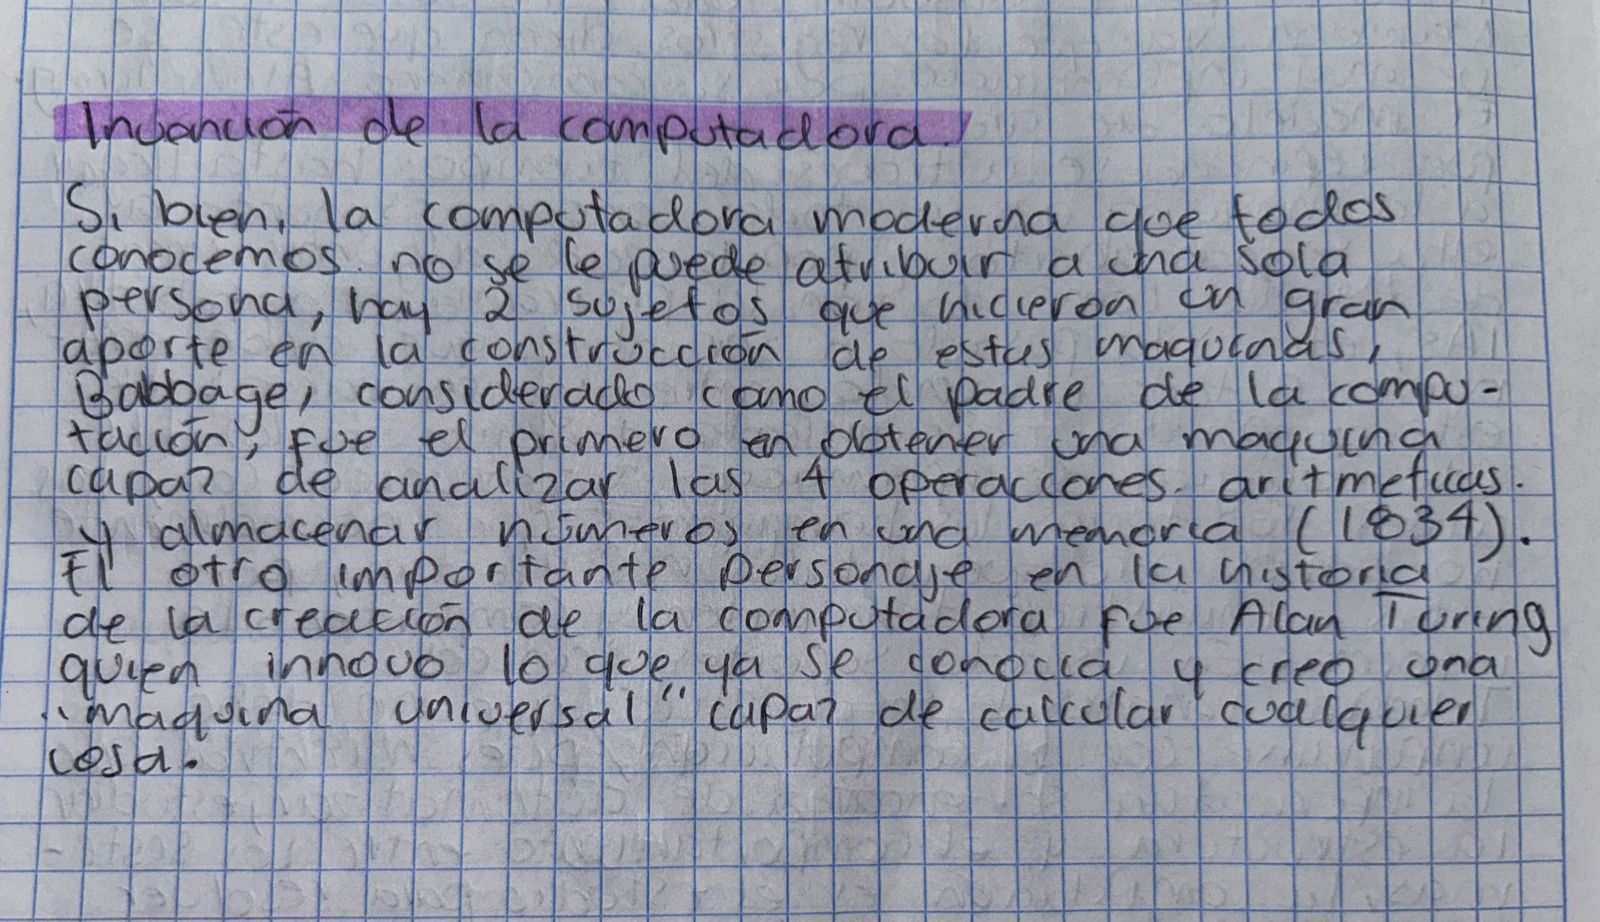 Invención de la computadora.
Si bien, la computadora moderna que todos
conocemos no se le puede atribuir a una sola
persona, hay 2 sujetos que hicieron un gran
aporte en la construcción de estas maquinas,
Babbage, considerado como el padre de la compu-
tación, fue el primero en obtener una maquina
capaz de analizar las 4 operaciones aritmeticas.
y almacenar números en una memoria (1834).
El otro importante personaje en la historia
de la creación de la computadora fue Alan Turing
quien innovo lo que ya se conocia y creo una
"maquina universal" capaz de calcular cualquier
cosa.